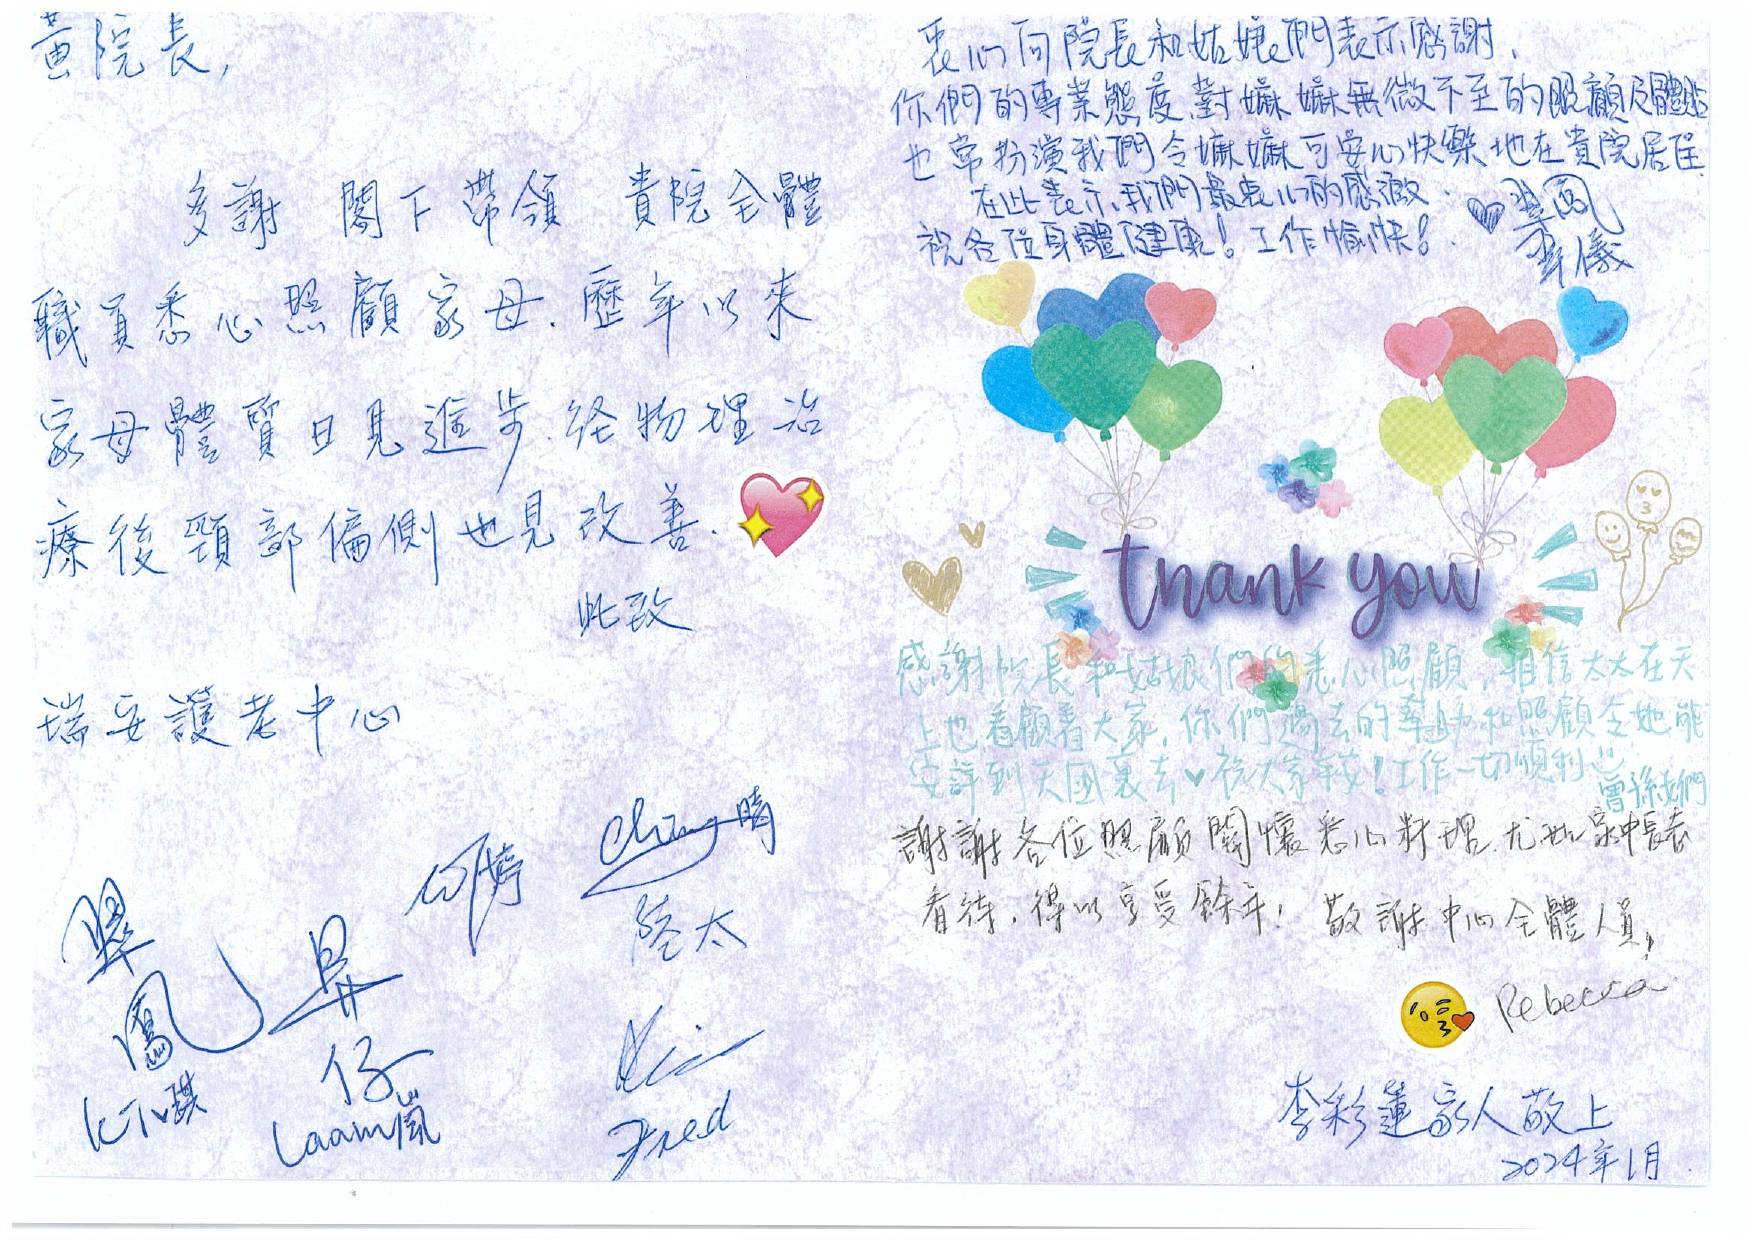 黃院長,
多謝 閣下帶領 貴院全體
職員悉心照顧家母.歷年以來
家母體質日見進步.経物理治
療後頸部偏側也見改善.
此致
瑞安護老中心
翠鳳
昇仔
Ching晴
陸太
Fred
衷心向院長和姑娘們表示感謝,
你們的專業態度,對嫲嫲無微不至的照顧及體貼
也常扮演我們令嫲嫲可安心快樂地在貴院居住.
在此表示我們最衷心的感激.
祝各位身體健康!工作愉快!
翠鳳
thank you
感謝院長和姑娘們的悉心照顧,相信太太在天
上也看顧着大家,你們過去的幫助和照顧令她能
安詳到天國裏去♥祝大家平安!工作一切順利
曾孫
謝謝各位照顧關懷悉心料理尤如家中長者
看待,得以享受餘年,敬謝中心全體人員,
Rebecca
李彩蓮家人敬上
2024年1月